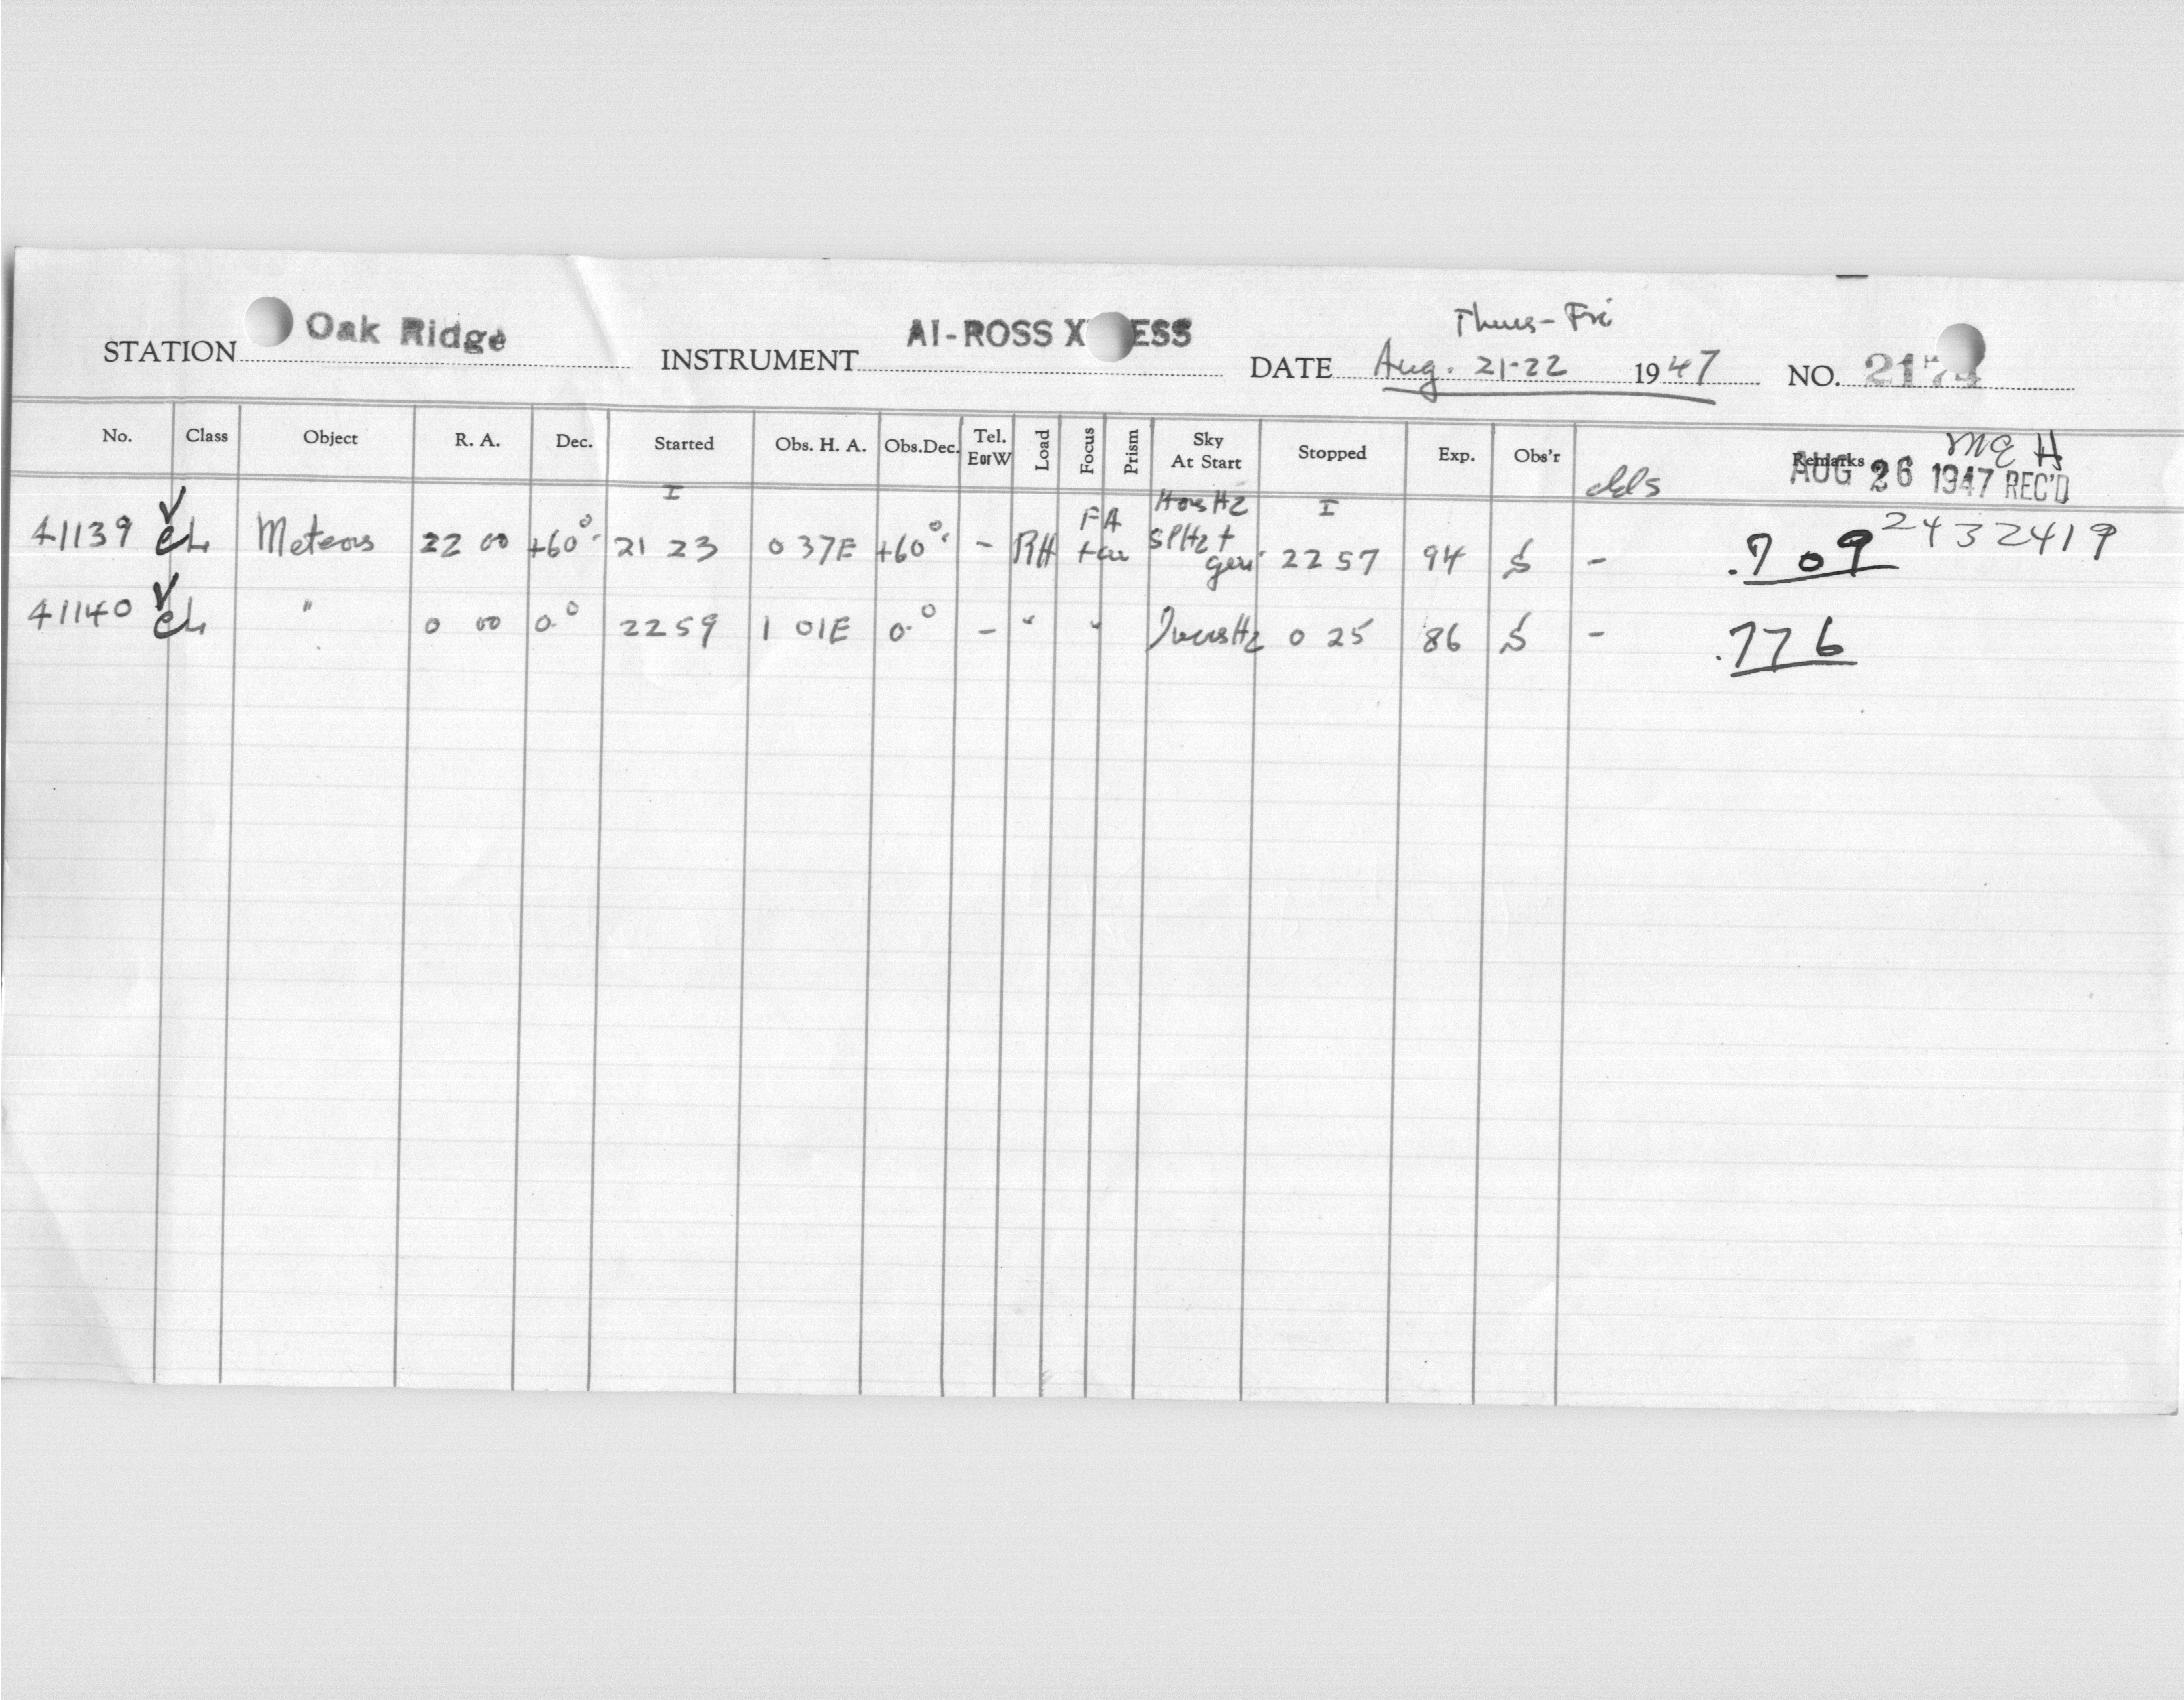 Thurs-Fri
STATION Oak Ridge INSTRUMENT AI-ROSS X ESS DATE Aug. 21-22 1947 NO. 217
No. Class Object R. A. Dec. Started Obs. H. A. Obs.Dec. Tel. E or W Load Focus Prism Sky At Start Stopped Exp. Obs'r Remarks
AUG 26 1947 REC'D
I Hz I
41139 Meteors 22 00 +60° 21 23 0 37E +60° - RH FA SPHz + 22 57 94 S - .709 2432419
41140 " 0 00 0° 22 59 1 01E 0° - " " 0 25 86 S - .776